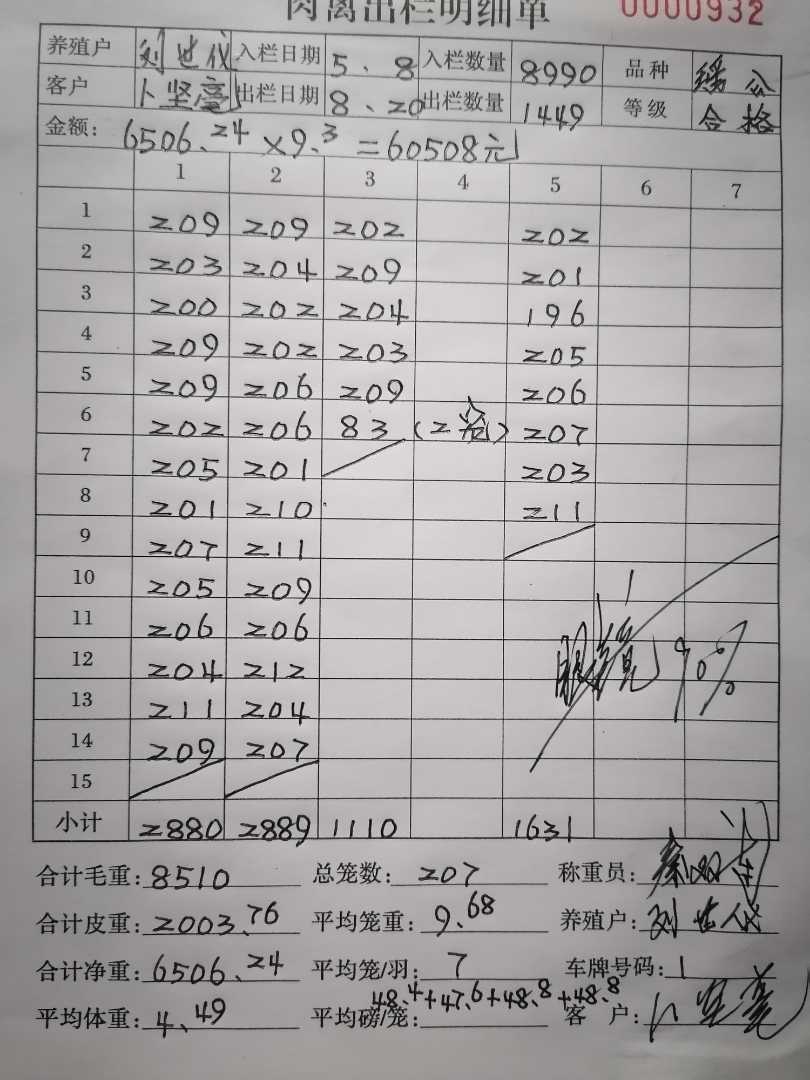 肉禽出栏明细单 0000932
养殖户 刘世代 入栏日期 5、8 入栏数量 8990 品种
客户 卜坚毫 出栏日期 8、20 出栏数量 1449 等级 合格
金额: 6506.24 ×9.3 =60508元
1 2 3 4 5 6 7
1 209 209 202 202
2 203 204 209 201
3 200 202 204 196
4 209 202 203 205
5 209 206 209 206
6 202 206 83 (2笼) 207
7 205 201 203
8 201 210 211
9 207 211
10 205 209
11 206 206
12 204 212
13 211 204
14 209 207
15
小计 2880 2889 1110 1631
合计毛重: 8510 总笼数: 207 称重员:
合计皮重: 2003.76 平均笼重: 9.68 养殖户:
合计净重: 6506.24 平均笼/羽: 7 车牌号码: 1
48.4+47.6+48.8+48.8
平均体重: 4.49 平均磅/笼: 客 户: